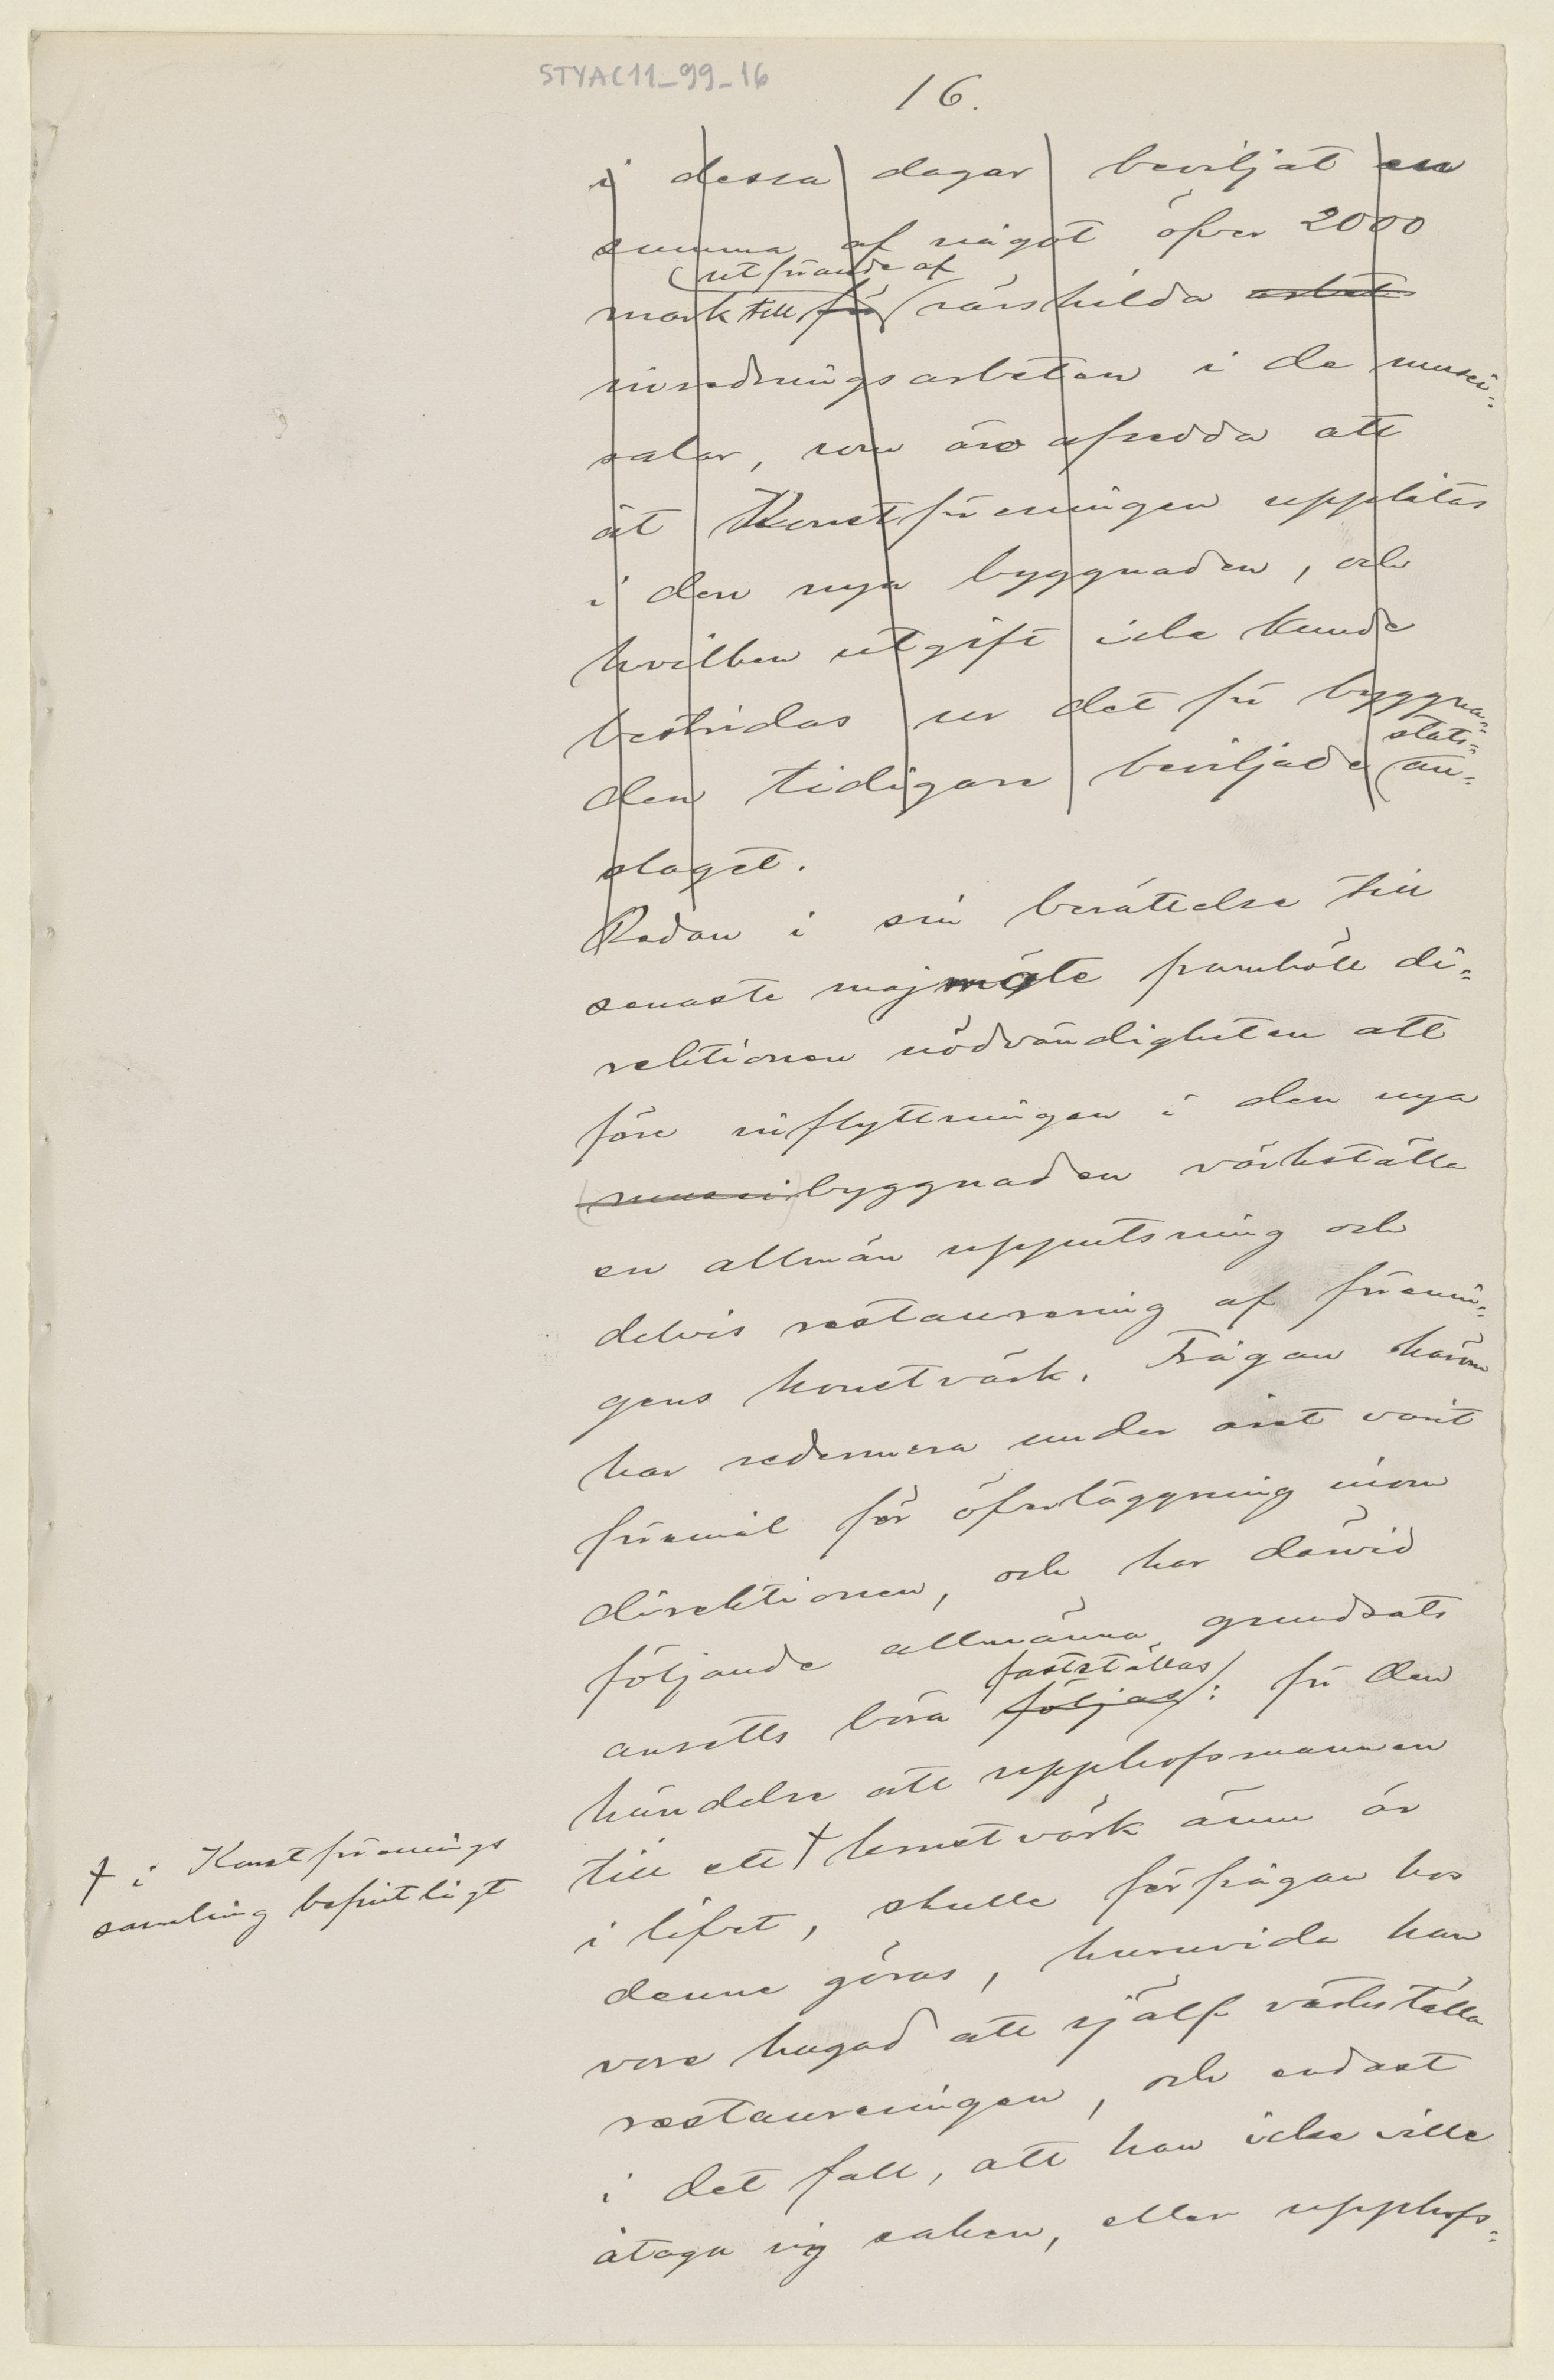 STYAC11_99_16
16.
i dessa dagar beviljat en
summa af något öfver 2000
utförande af
mark till för särskilda arbet
inredningsarbeten i de musei-
salar, som äro afsedda att
åt Konstföreningen upplåtas
i den nya byggnaden, och
hvilken utgift icke kunde
bestridas ur det för byggna-
stats-
den tidigare beviljade an-
slaget.
Redan i sin berättelse till
senaste majmöte framhöll di-
rektionen nödvändigheten att
före inflyttningen i den nya
(musei)byggnaden värkställa
en allmän upputsning och
delvis restaurering af förenin-
gens konstvärk. Frågan härom
har sedermera under året varit
föremål för öfverläggning inom
direktionen, och har därvid
följande allmänna grundsats
fastställas
ansetts böra följas: för den
händelse att upphofsmannen
till ett † konstvärk ännu är
† i Konstförenings
samling befintligt
i lifvet, skulle förfrågan hos
denne göras, huruvida han
vore hugad att själf värkställa
restaureringen, och endast
i det fall, att han icke ville
åtaga sig saken, eller upphofs-